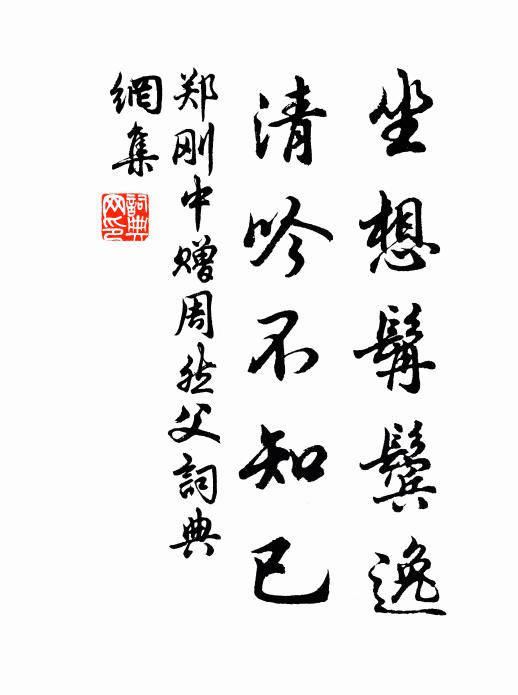 坐想髯鬓逸
清吟不知已
郑刚中赠周然父詞典
網集
詞典网印